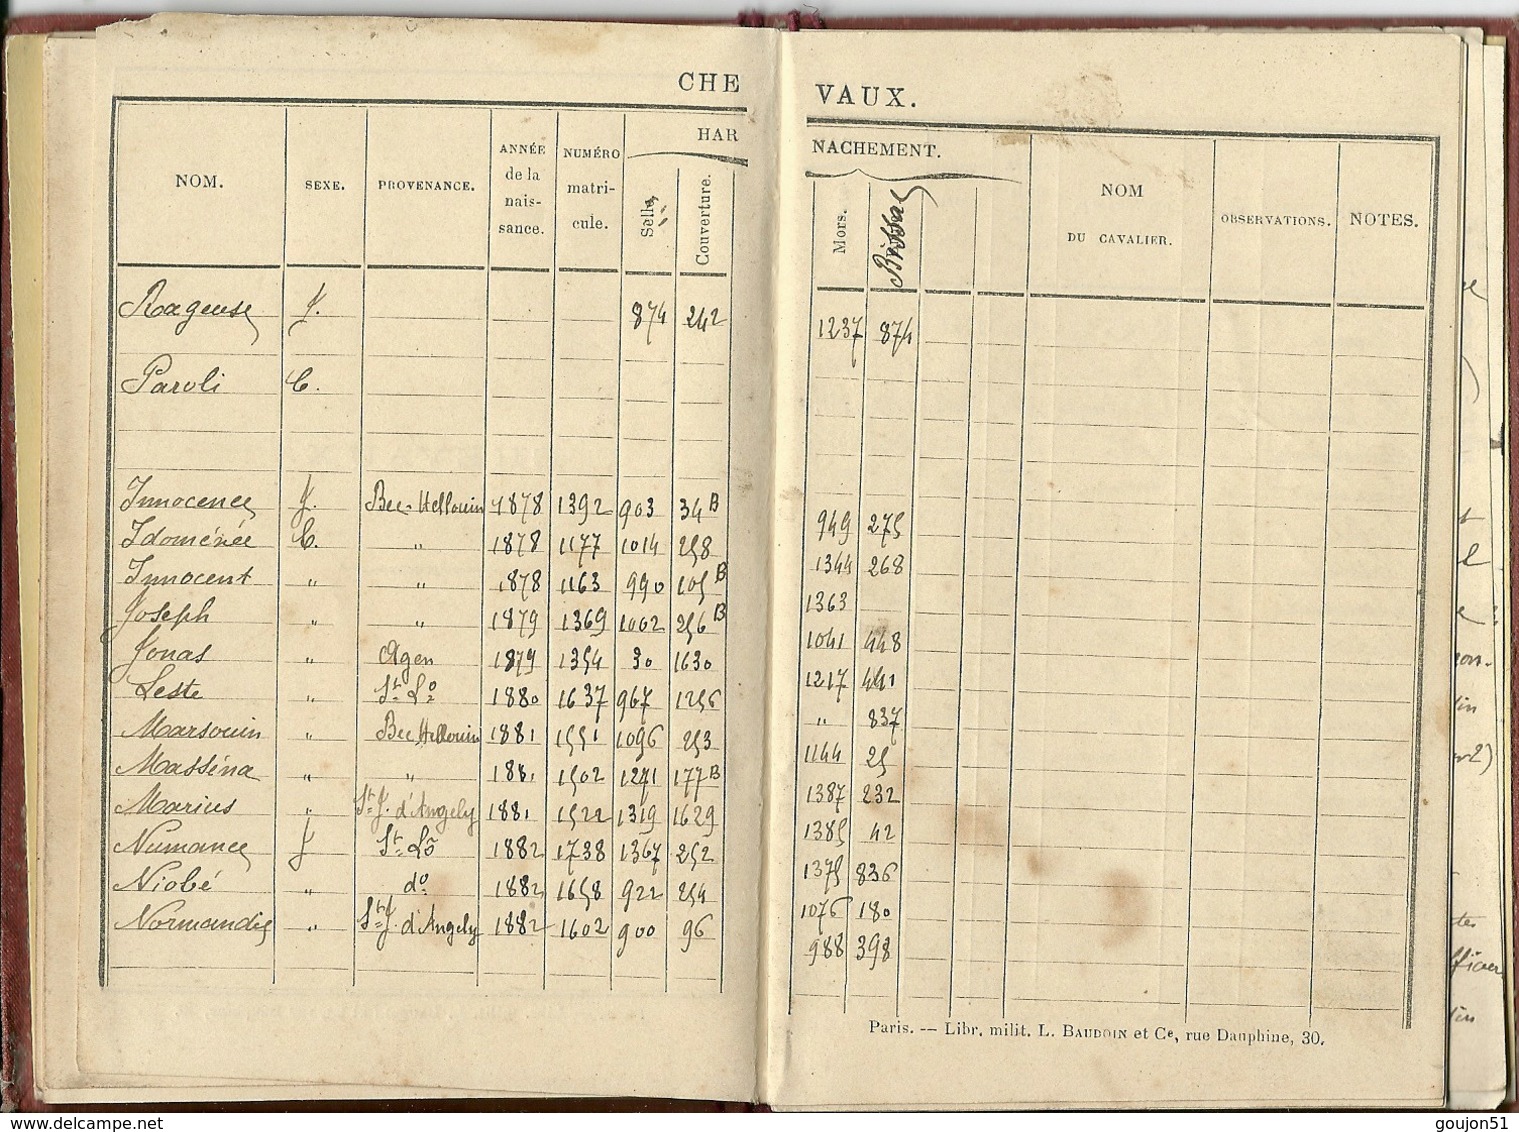 CHEVAUX.
NOM. SEXE. PROVENANCE. ANNÉE de la nais- sance. NUMÉRO matri- cule. HARNACHEMENT. Selle Couverture. Mors. Bissac NOM DU CAVALIER. OBSERVATIONS. NOTES.
Rageuse J. 874 242 1237 874
Paroli C.
Innocence J. Bec-Hellouin 1878 1392 903 34 B 949 275
Idoménée C. " 1878 1177 1014 258 1344 268
Innocent " " 1878 1163 990 105 B 1363
Joseph " " 1879 1369 1002 256 B 1041 448
Jonas " Agen 1879 1354 30 1630 1217 441
Leste " St Lô 1880 1637 967 1256 " 837
Marsouin " Bec Hellouin 1881 1551 1096 253 1144 25
Masséna " " 1881 1502 1271 177 B 1387 232
Marius " St J. d'Angely 1881 1522 1319 1629 1385 42
Numance J St Lô 1882 1738 1367 252 1375 836
Niobé " do 1882 1658 922 254 1076 180
Normandie " St J. d'Angely 1882 1602 900 96 988 398
Paris. — Libr. milit. L. BAUDOIN et Ce, rue Dauphine, 30.
delcampe.net
goujon51